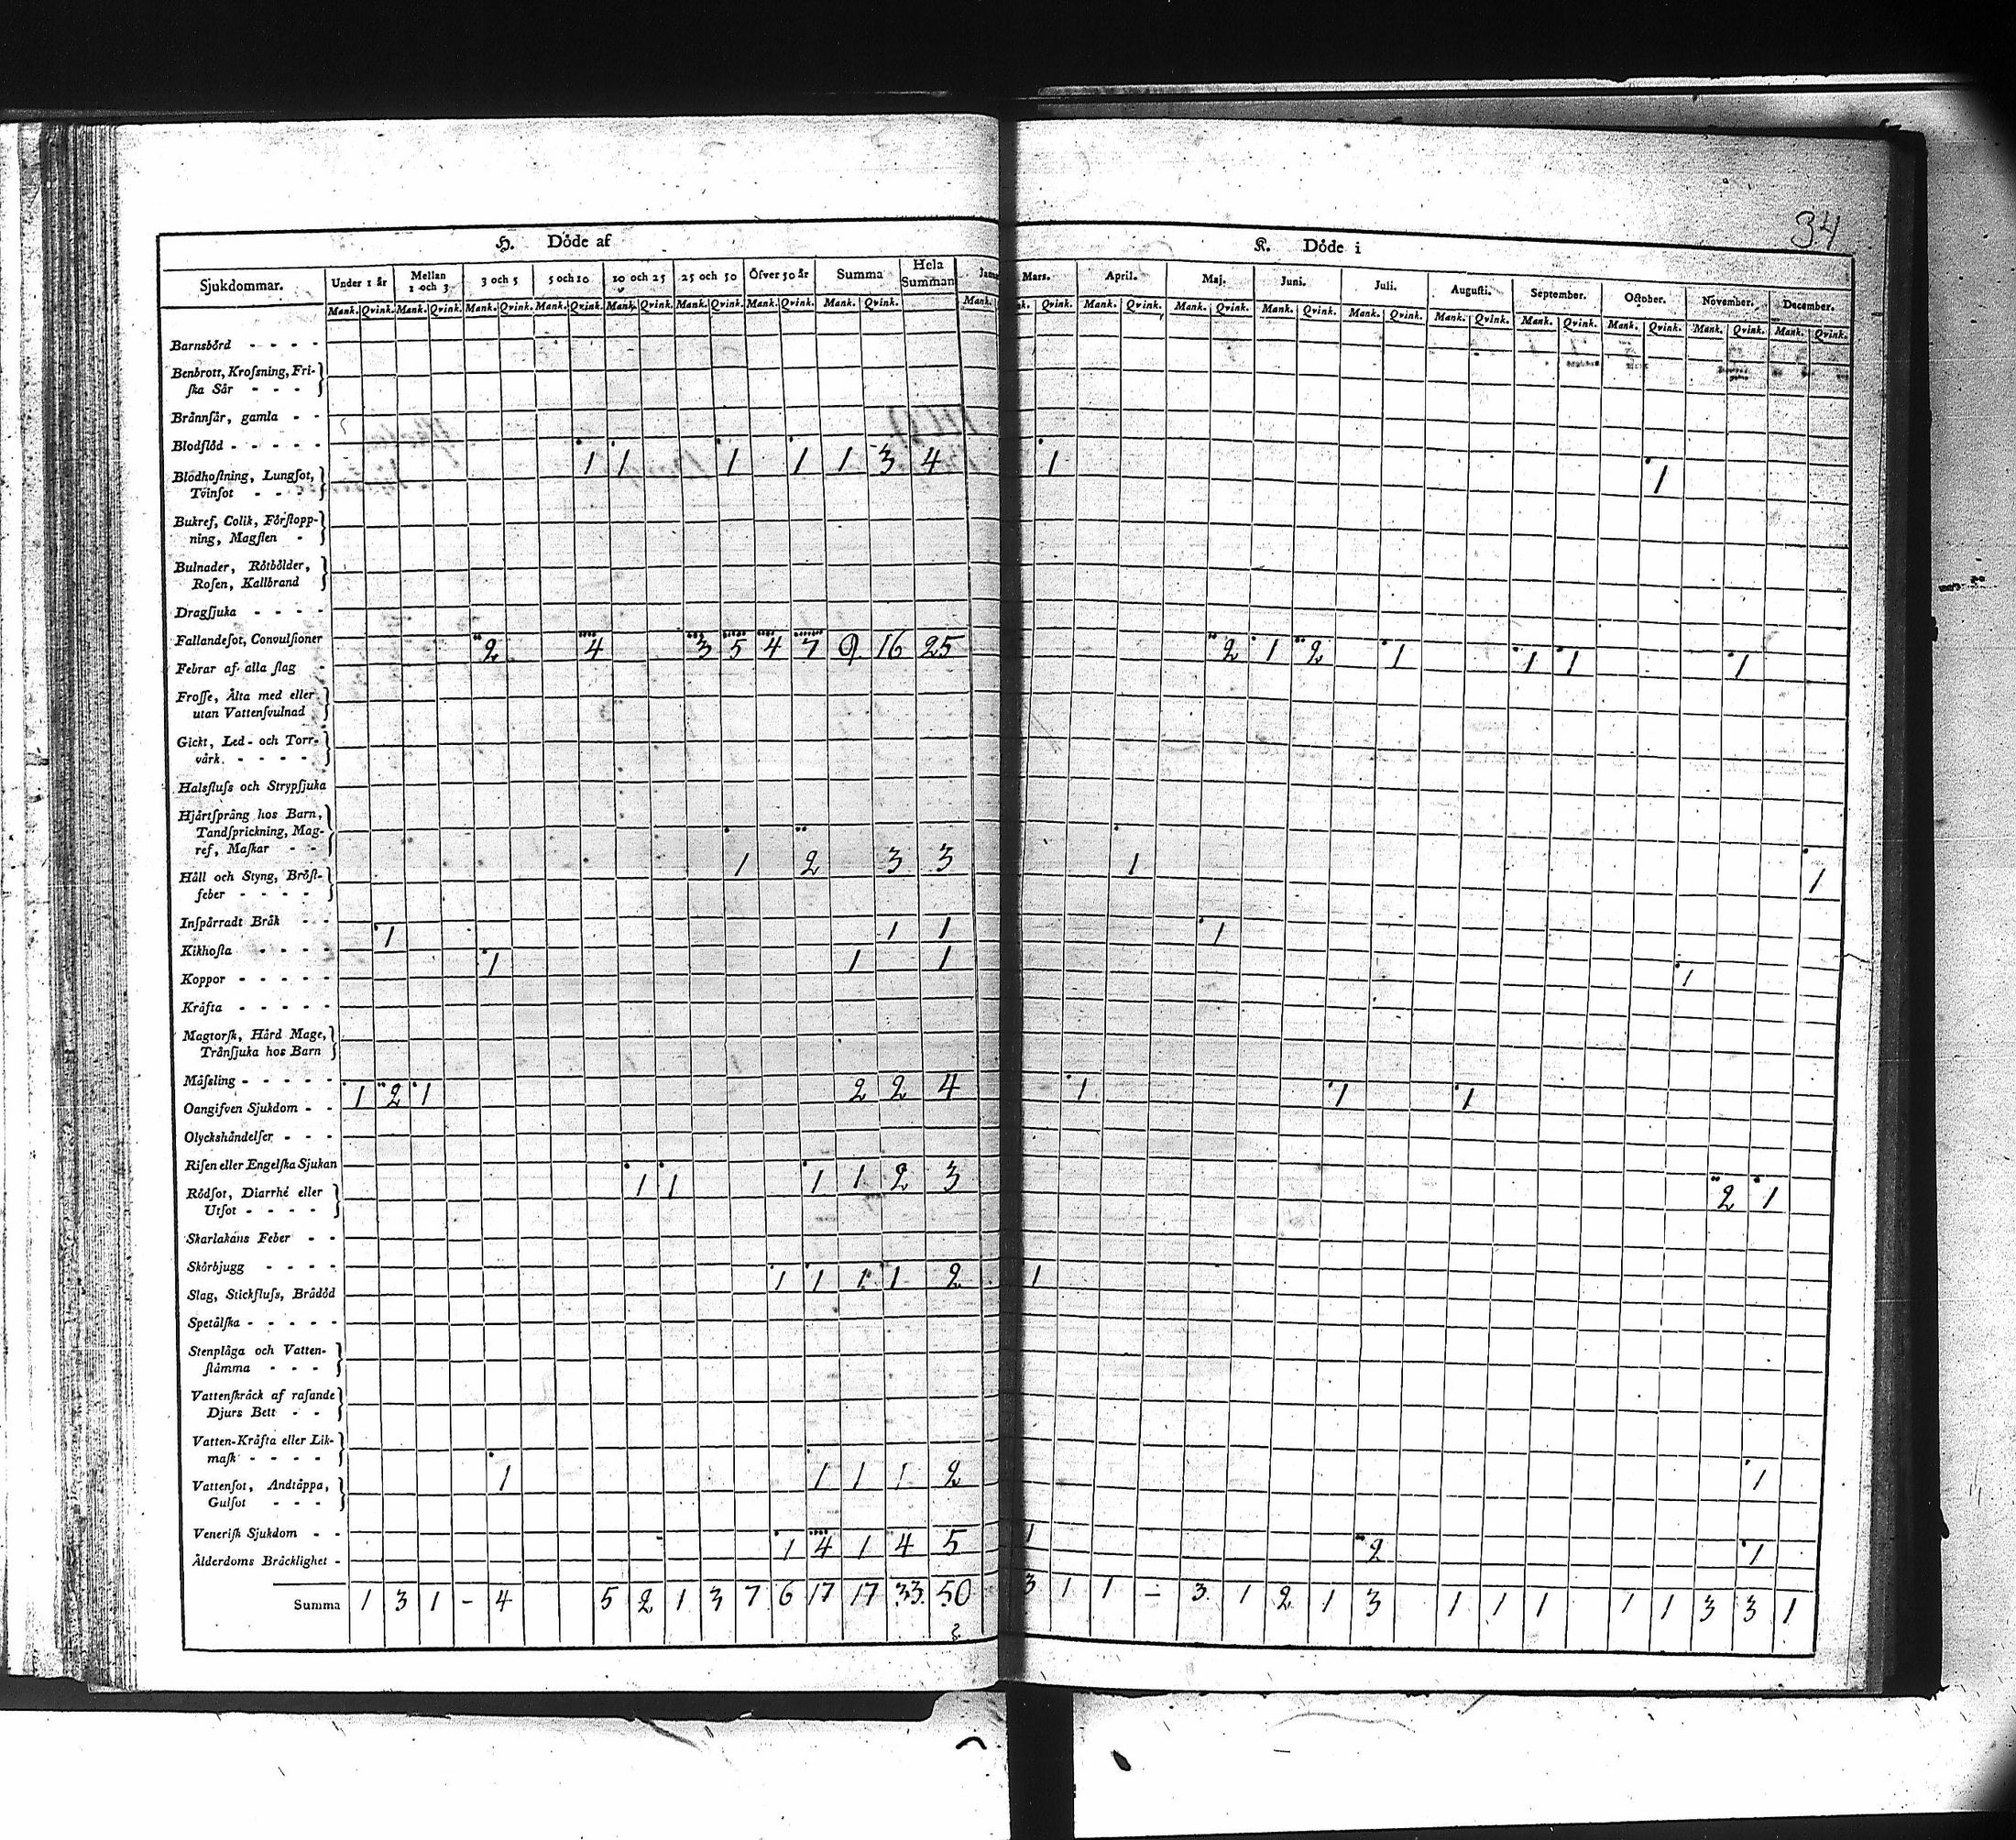 34
H. Döde af
K. Döde i
Sjukdommar. Under 1 år Mellan 1 och 3 3 och 5 5 och 10 10 och 25 25 och 50 Öfver 50 år Summa Hela Summan
Mars. April. Maj. Juni. Juli. Augusti. September. October. November. December.
Mank. Qvink. Mank. Qvink. Mank. Qvink. Mank. Qvink. Mank. Qvink. Mank. Qvink. Mank. Qvink. Mank. Qvink. Mank.
Qvink. Mank. Qvink. Mank. Qvink. Mank. Qvink. Mank. Qvink. Mank. Qvink. Mank. Qvink. Mank. Qvink. Mank. Qvink. Mank. Qvink.
Barnsbörd - - - -
Benbrott, Krofsning, Fri-
ſka Sår - - -
Brånnſår, gamla - -
Blodflöd - - - - -
Blodhoſtning, Lungſot, 1 1 1 1 1 3 4 1 1
Tvinſot - - - -
Bukref, Colik, Förſtopp-
ning, Magſten -
Bulnader, Rötbölder,
Roſen, Kallbrand
Dragſjuka - - - -
Fallandeſot, Convulſioner
Febrar af alla ſlag - 2 4 3 5 4 7 9 16 25 2 1 2 1 1 1 1
Froſſe, Ålta med eller
utan Vattenſvulnad
Gickt, Led- och Torr-
vårk. - - - - -
Halsfluſs och Strypſjuka
Hjårtſprång hos Barn,
Tandſprickning, Mag-
ref, Maſkar - -
Håll och Styng, Bröſt- 1 2 3 3 1 1
feber - - - -
Inſpårradt Bråk - -
Kikhoſta - - - - 1 1 1 1
Koppor - - - - - 1 1 1 1
Kråfta - - - - -
Magtorſk, Hård Mage,
Trånſjuka hos Barn
Måſsling - - - - -
Oangifven Sjukdom - - 1 2 1 2 2 4 1 1 1
Olyckshåndelſer - - -
Riſen eller Engelſka Sjukan
Rödſot, Diarrhé eller 1 1 1 1 2 3 2 1
Utſot - - - -
Skarlakans Feber - -
Skörbjugg - - - -
Slag, Stickfluſs, Brådöd 1 1 1 1 2 1
Spetålſka - - - - -
Stenplåga och Vatten-
ſtåmma - - -
Vattenſkråck af raſande
Djurs Bett - -
Vatten-Kråfta eller Lik-
maſk - - - -
Vattenſot, Andtåppa, 1 1 1 1 2 1
Gulſot - - -
Veneriſk Sjukdom - -
Ålderdoms Bråcklighet - 1 4 1 4 5 1 2 1
Summa 1 3 1 - 4 5 2 1 3 7 6 17 17 33 50 3 1 1 - 3 1 2 1 3 1 1 1 1 1 3 3 1